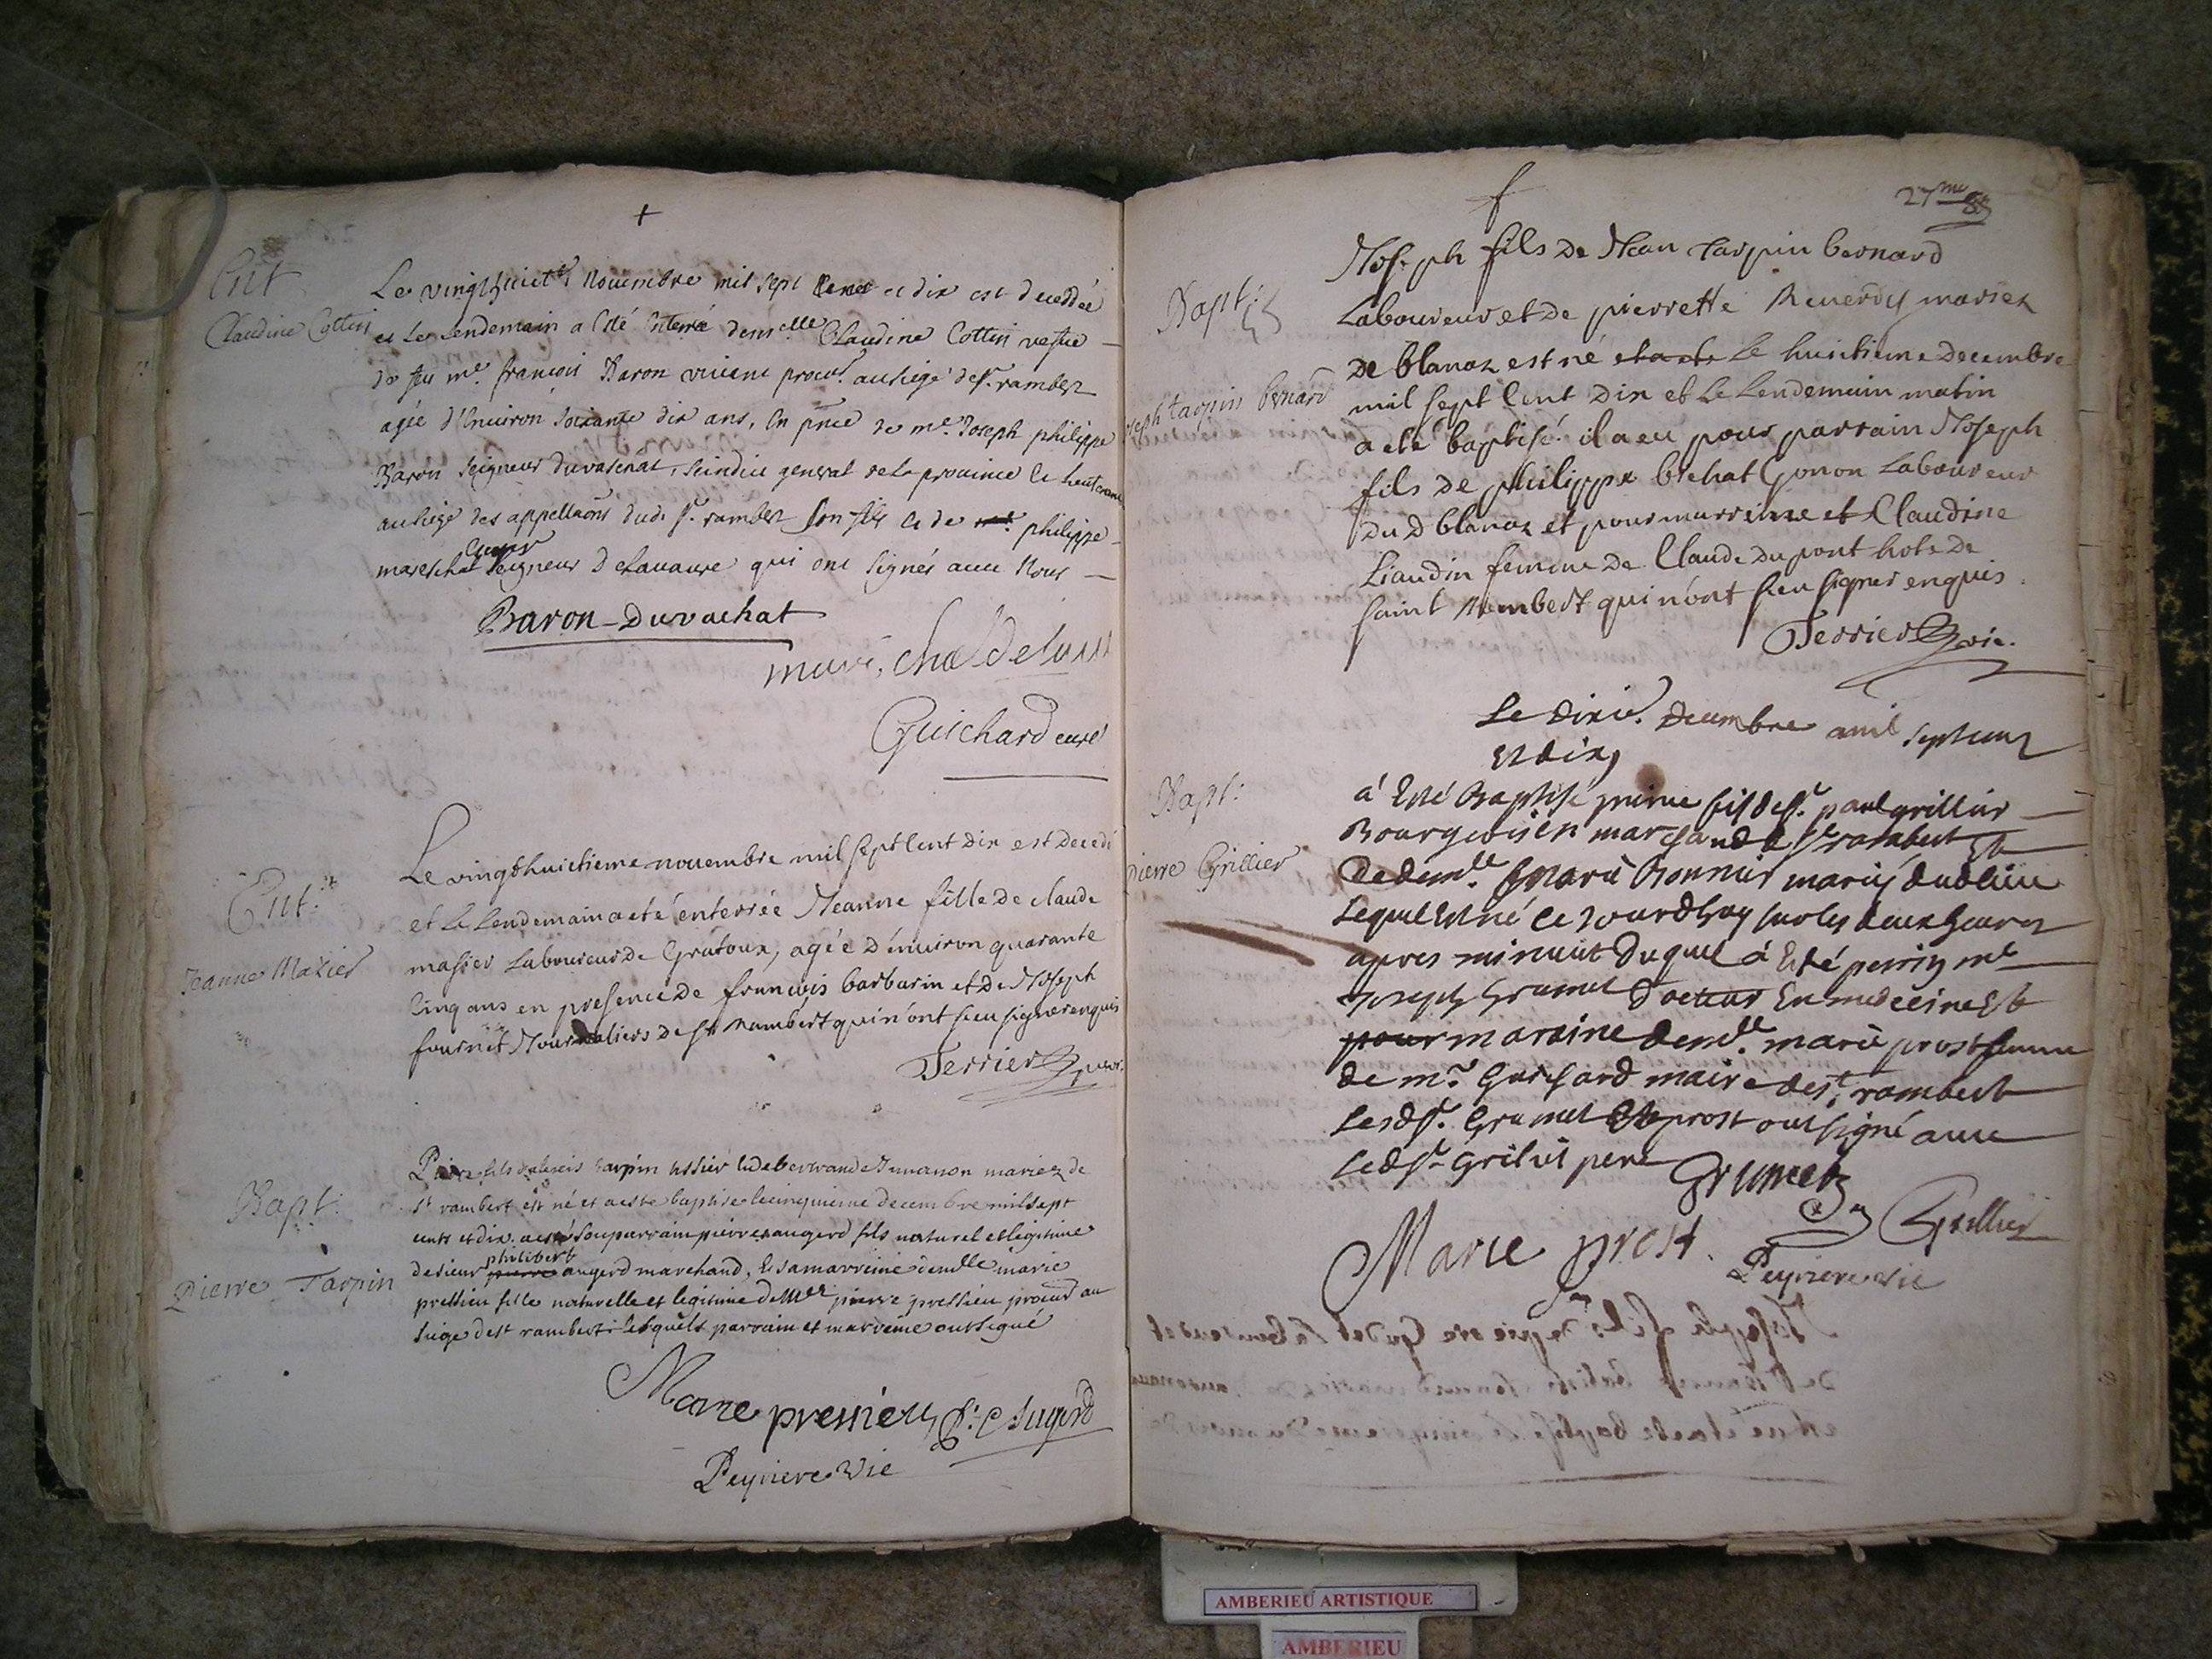 +
Ent
Claudine Cottin
Le vingthuict novembre mil sept cent et dix est decedée
et le lendemain a esté enterré demselle Claudine Cottin vefve
de feu me. françois Baron vivant procur. au siege de st. rambert
agée d'environ soixante dix ans, en pnce de me. Joseph philippe
Baron seigneur duvachat, scindic general de la province et lieutenant
au siege des appellaōns dud. st. rambert son fils et de philippe
mareschal seigneur D qui ont signés avec Nous
Baron-Duvachat
Guichard curé
Ent.
Jeanne Mazier
Le vingthuictieme novembre mil sept cent dix est decedé
et le lendemain a eté enterrée Jeanne fille de claude
masier laboureur de Gratoux, agée d'environ quarante
cinq ans en presence de francois barbarin et de Joseph
fournet Journaliers de st rambert qui n'ont sceu signer enquis
Terrier
Bapt:
Pierre Tarpin
Pierre fils d'alexis tarpin et de mariez de
st rambert est né et a este baptise le cinquieme decembre mil sept
cents et dix. son parrain pierre augerd fils naturel et legitime
de sieur pierre philibert augerd marchand, et sa marreine demlle marie
pressieu fille naturelle et legitime de Mer pierre pressieu procur au
siege de st rambert lesquels parrain et marreine ont signé
Marie pressieu P. Augerd
Peysiere vic
+
27me
Bapt:
Joseph tarpin bernard
Joseph fils de Jean tarpin bernard
Laboureur et de pierrette Reverdy mariez
de blanaz est né le huictieme decembre
mil sept cent dix et le lendemain matin
a eté baptisé. il a eu pour parrain Joseph
fils de philippe brehat Gonon Laboureur
du d blanaz et pour marreine et Claudine
Liaudin femme de Claude dupont hote de
saint Rambert qui n'ont sceu signer enquis.
Terrier vic.
Bapt:
Pierre Grillier
Le dixie. decembre mil sept cent
et dix,
á esté Baptisé pierre fils de sr. paul grillier
Bourgeois et marchand de st rambert et
de demlle. marie Bonnier mariés dudlieu
lequel est né ce jourdhuy sur les deux heures
apres minuit duquel á esté perrin mr
joseph Grumet docteur en medecine et
pour maraine demlle. marie prost femme
de mr. Guichard maire de st. rambert
lesd sr. Grumet et prost ont signé avec
led sr. Grilier pere
Grumet
Marie prost.
Grillier
Peysiere vic
AMBERIEU ARTISTIQUE
AMBERIEU